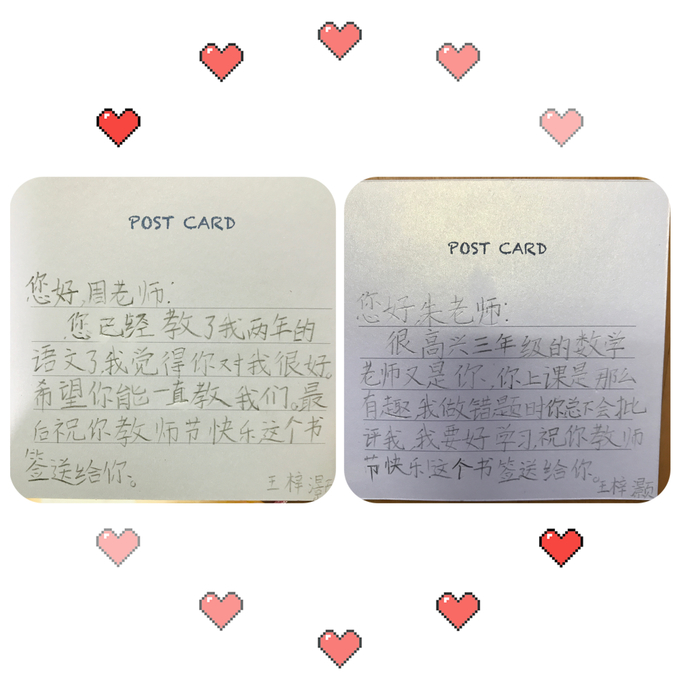 POST CARD
您好,周老师:
您已经教了我两年的
语文了,我觉得你对我很好。
希望你能一直教我们。最
后祝你教师节快乐这个书
签送给你。
王梓灏
POST CARD
您好朱老师:
很高兴三年级的数学
老师又是你、你上课是那么
有趣,我做错题时你总不会批
评我,我要好学习,祝你教师
节快乐!这个书签送给你。
王梓灏